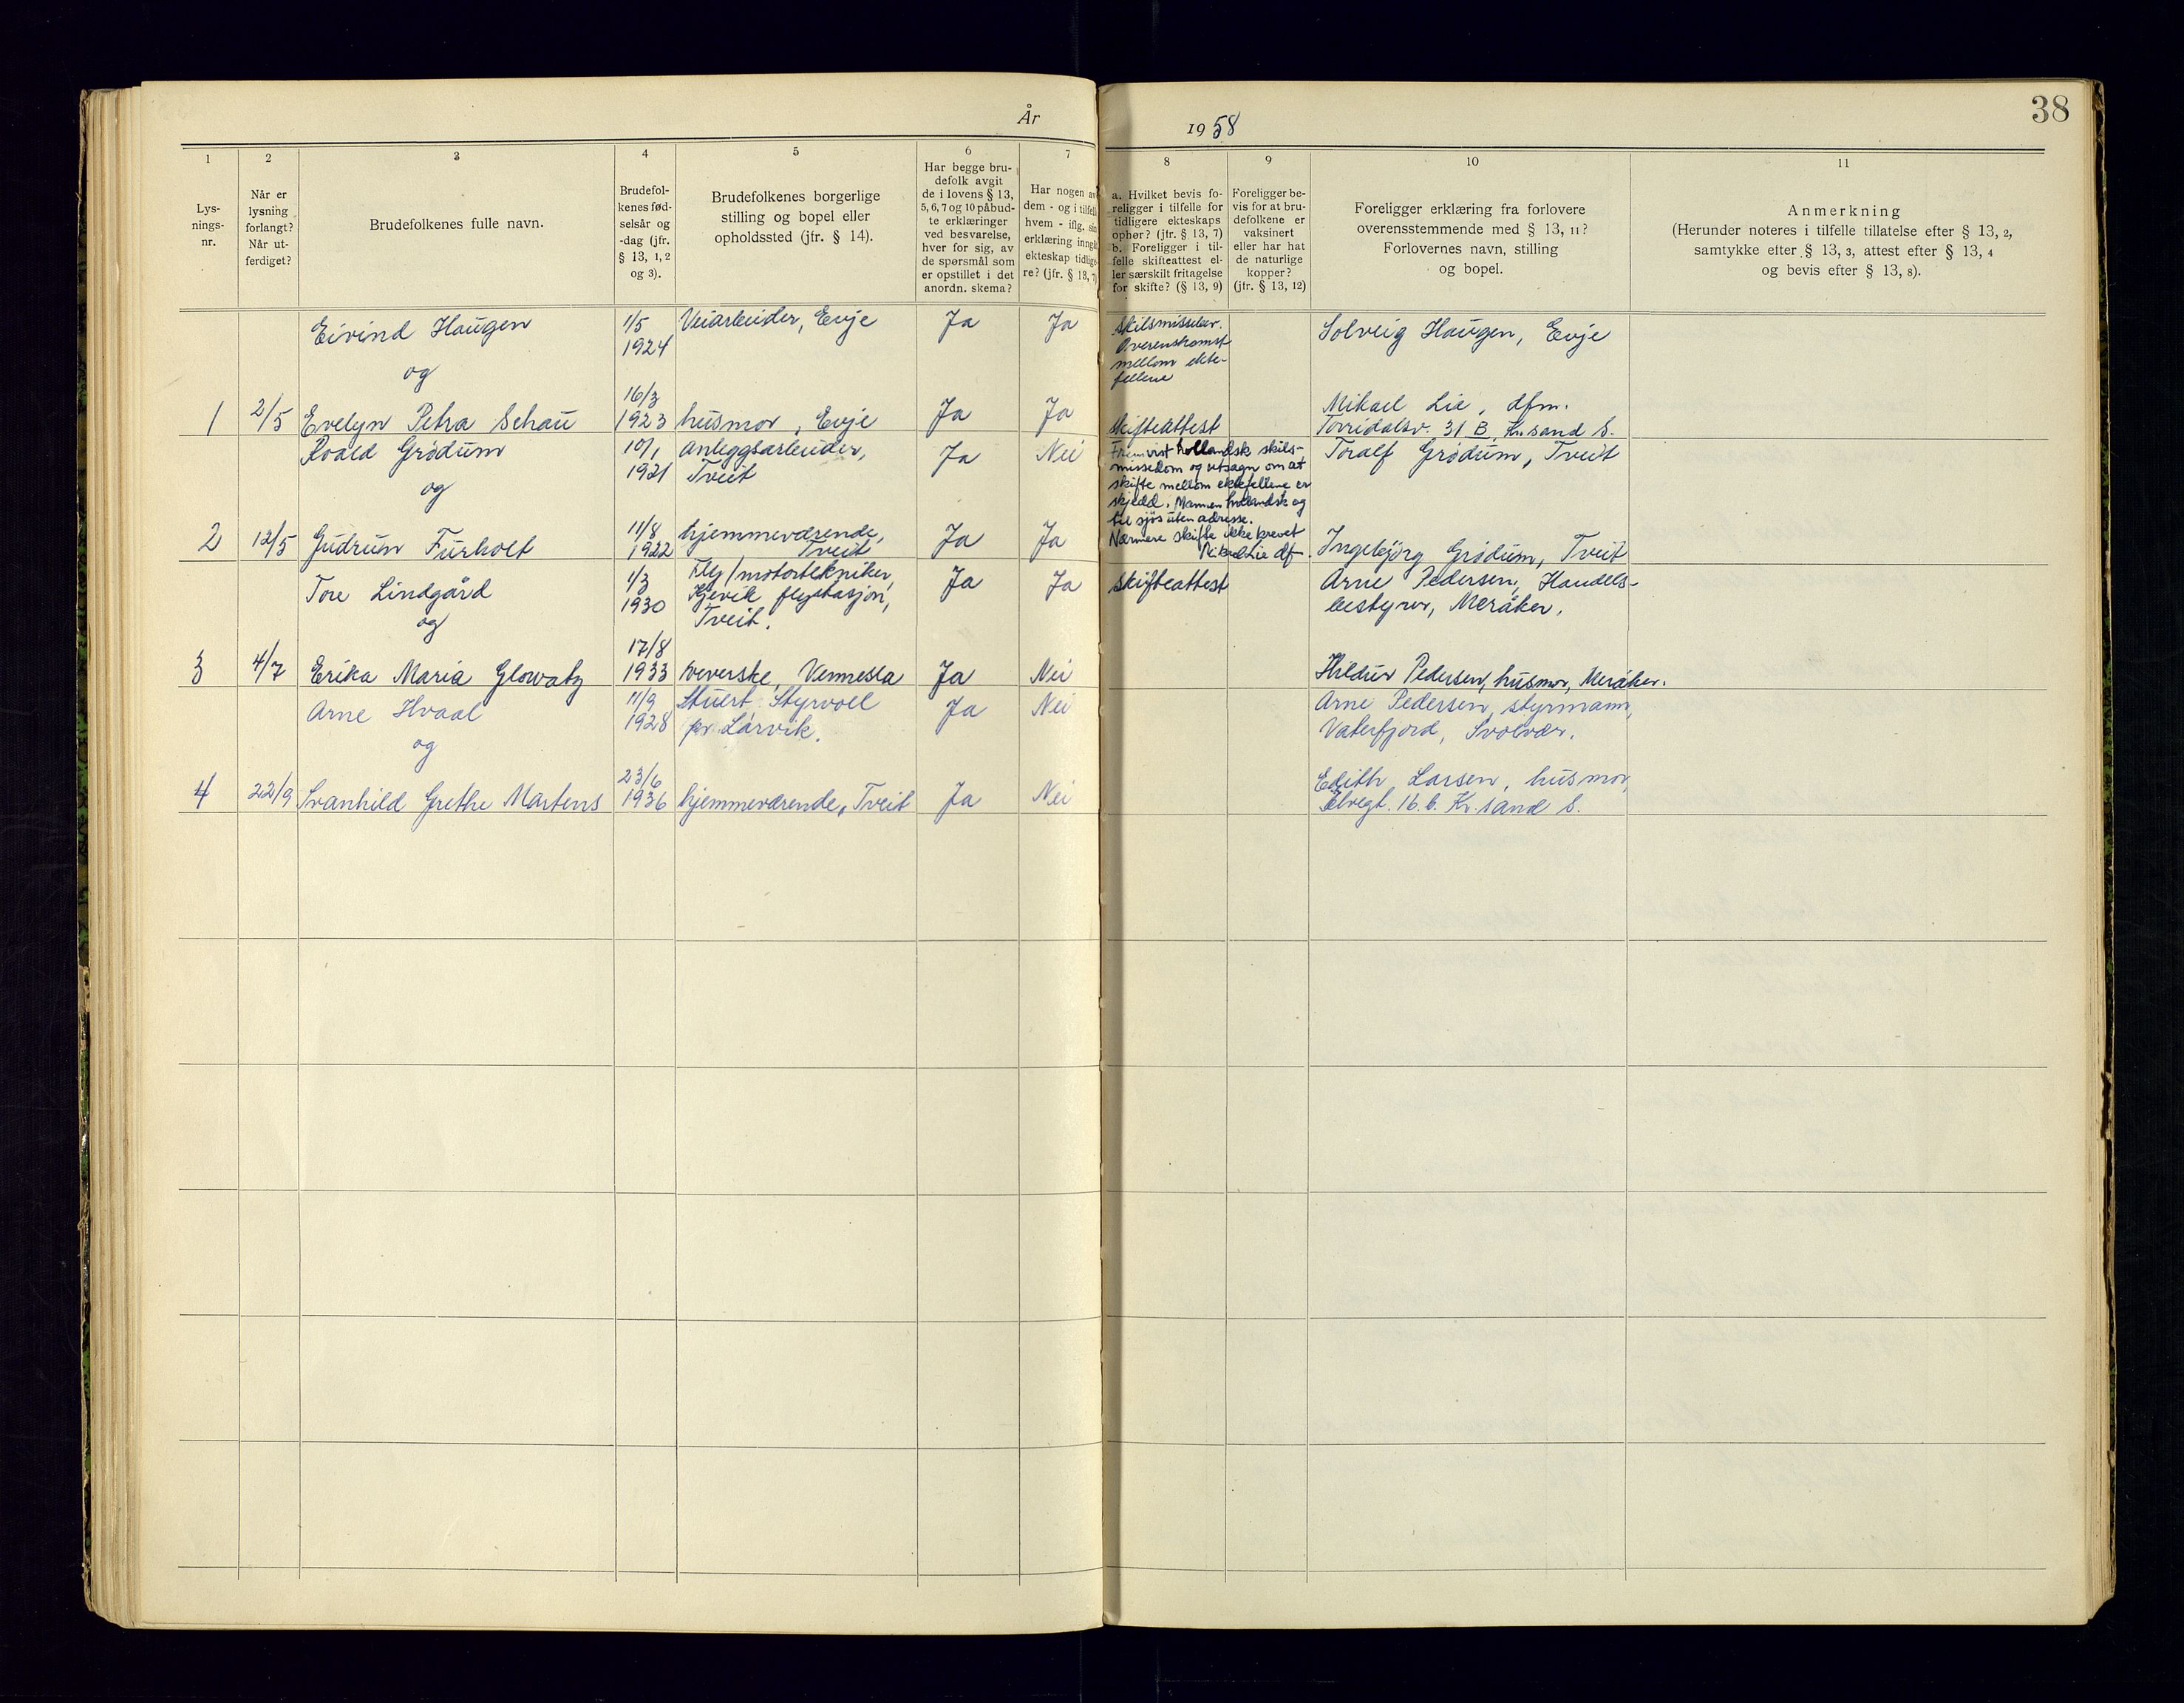 År 1958
38
1
Lys-
nings-
nr.
2
Når er
lysning
forlangt?
Når ut-
ferdiget?
3
Brudefolkenes fulle navn.
4
Brudefol-
kenes fød-
selsår og
-dag (jfr.
§ 13, 1, 2
og 3).
5
Brudefolkenes borgerlige
stilling og bopel eller
opholdssted (jfr. § 14).
6
Har begge bru-
defolk avgit
de i lovens § 13,
5, 6, 7 og 10 påbud-
te erklæringer
ved besvarelse,
hver for sig, av
de spørsmål som
er opstillet i det
anordn. skema?
7
Har nogen av
dem - og i tilfelle
hvem - iflg. sin
erklæring inngått
ekteskap tidlige-
re? (jfr. § 13, 7)
8
a. Hvilket bevis fo-
religger i tilfelle for
tidligere ekteskaps
ophør? (jfr. § 13, 7)
b. Foreligger i til-
felle skifteattest el-
ler særskilt fritagelse
for skifte? (§ 13, 9)
9
Foreligger be-
vis for at bru-
defolkene er
vaksinert
eller har hat
de naturlige
kopper?
(jfr. § 13, 12)
10
Foreligger erklæring fra forlovere
overensstemmende med § 13, 11?
Forlovernes navn, stilling
og bopel.
11
Anmerkning
(Herunder noteres i tilfelle tillatelse efter § 13, 2,
samtykke efter § 13, 3, attest efter § 13, 4
og bevis efter § 13, 8).
Eivind Haugen
1/5
1924
Veiarbeider, Evje
Ja
Ja
Skilsmissebev.
Overenskomst
mellom ekte-
fellene
Solveig Haugen, Evje
og
1
2/5
Evelyn Petra Schau
16/3
1923
husmor, Evje
Ja
Ja
Skifteattest
Mikael Lie, dfm.
Torridalsv. 31 B, Kr.sand S.
Roald Grødum
10/1
1921
Anleggsarbeider,
Tveit
Ja
Nei
Fremvist hollandsk skils-
missedom og utsagn om at
skifte mellom ektefellene er
skjedd. Mannen hollandsk og
til sjøs uten adresse.
Nærmere skifte ikke krevet
Mikael Lie df.
Toralf Grødum, Tveit
og
2
12/5
Gudrun Furholt
11/8
1922
hjemmeværende,
Tveit
Ja
Ja
Ingebjørg Grødum, Tveit
Tore Lindgård
1/3
1930
Fly/motortekniker,
Kjevik flystasjon,
Tveit.
Ja
Ja
Skifteattest
Arne Pedersen, Handels-
bestyrer, Meråker.
og
3
4/7
Erika Maria Glowatz
17/8
1933
veverske, Vennesla
Ja
Nei
Hildur Pedersen, husmor, Meråker.
Arne Hvaal
11/9
1928
Stuert Styrvoll
pr Larvik.
Ja
Nei
Arne Pedersen, styrmann,
Vaterfjord, Svolvær.
og
4
22/9
Svanhild Grethe Martens
23/6
1936
hjemmeværende, Tveit
Ja
Nei
Edith Larsen, husmor,
Elvegt. 16.b. Kr.sand S.